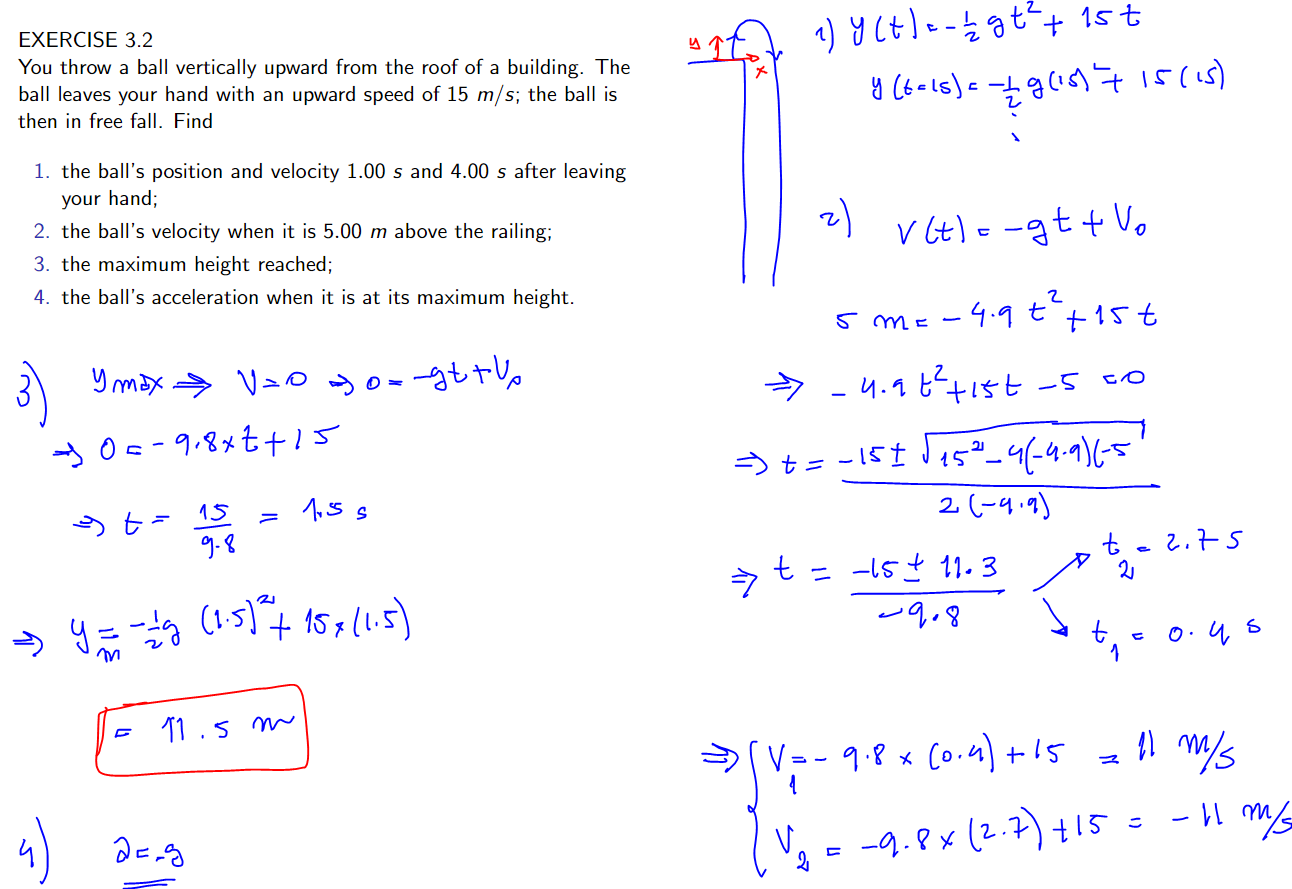 EXERCISE 3.2
You throw a ball vertically upward from the roof of a building. The
ball leaves your hand with an upward speed of 15 m/s; the ball is
then in free fall. Find
1. the ball's position and velocity 1.00 s and 4.00 s after leaving
your hand;
2. the ball's velocity when it is 5.00 m above the railing;
3. the maximum height reached;
4. the ball's acceleration when it is at its maximum height.
y
x
1) y(t) = -1/2 g t² + 15 t
y(t=1s) = -1/2 g(1s)² + 15(1s)
⋮
2) v(t) = -gt + V₀
5 m = -4.9 t² + 15 t
⇒ -4.9 t² + 15t - 5 = 0
⇒ t = (-15 ± √(15² - 4(-4.9)(-5)) / 2(-4.9)
⇒ t = (-15 ± 11.3) / -9.8
t₂ = 2.7 s
t₁ = 0.4 s
⇒ { V₁ = -9.8 × (0.4) + 15 = 11 m/s
V₂ = -9.8 × (2.7) + 15 = -11 m/s
3) y max ⇒ V=0 ⇒ 0 = -gt + V₀
⇒ 0 = -9.8 × t + 15
⇒ t = 15/9.8 = 1.5 s
⇒ yₘ = -1/2 g (1.5)² + 15 × (1.5)
= 11.5 m
4) a = -g